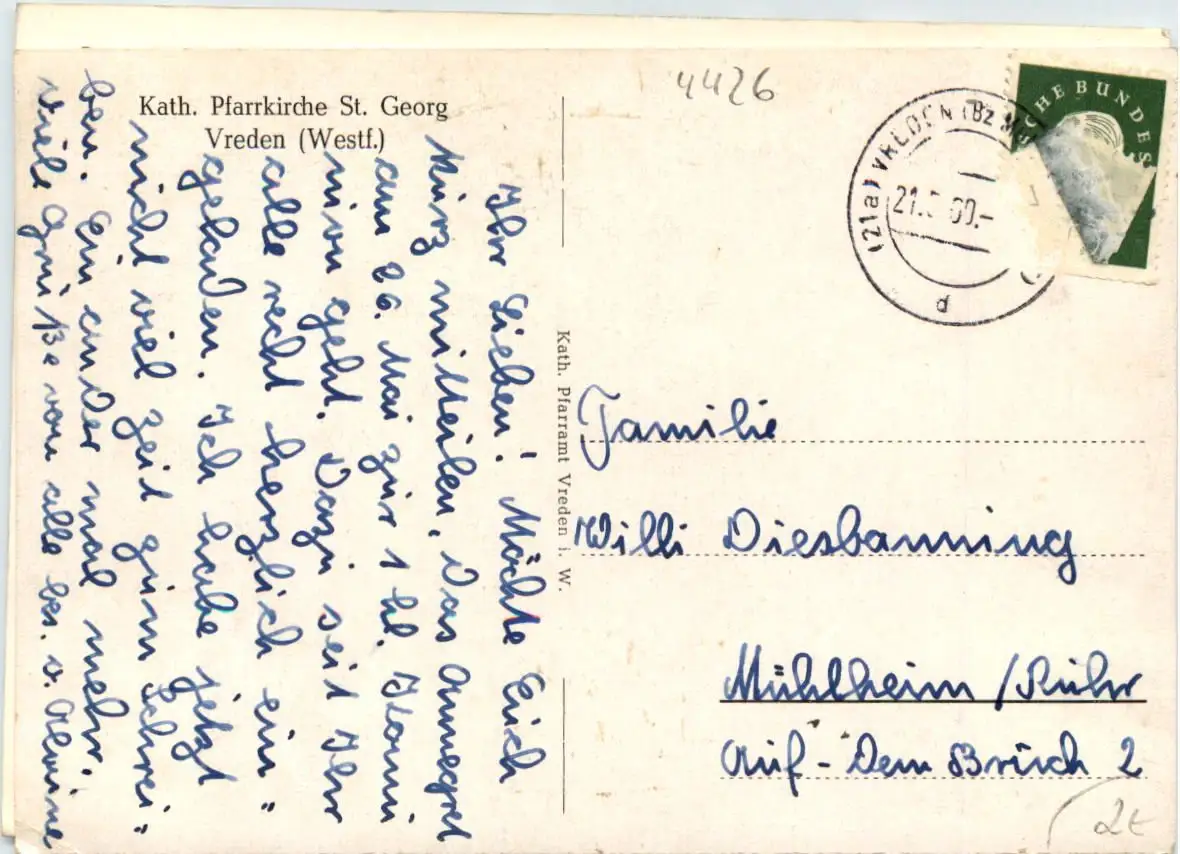 Kath. Pfarrkirche St. Georg
Vreden (Westf.)
Ihr Lieben! Möchte Euch
kurz mitteilen, das Annegret
am 26. Mai zur 1 hl. Komm
nion geht. Dazu seit Ihr
alle recht herzlich ein"
geladen. Ich habe jetzt
nicht viel zeit zum Schrei"
ben. Ein ander mal mehr.
Viele Grüße von alle bes. v. Alwine
Kath. Pfarramt Vreden i. W.
4426
CHE BUNDES
(21a) VREDEN (Bz
21. 60.-
d
Familie
Willi Diesbanning
Mühlheim /Ruhr
Auf-Dem Bruch 2
2€